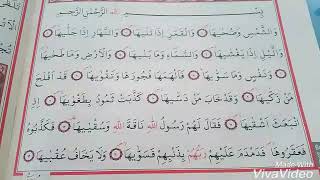 بِسْــــــمِ اللهِ الرَّحْمٰنِ الرَّحِيمِ
وَالشَّمْسِ وَضُحٰيهَا ۝ وَالْقَمَرِ اِذَا تَلٰيهَا ۝ وَالنَّهَارِ اِذَا جَلّٰيهَا ۝
وَالَّيْلِ اِذَا يَغْشٰيهَا ۝ وَالسَّمَٓاءِ وَمَا بَنٰيهَا ۝ وَالْاَرْضِ وَمَا طَحٰيهَا ۝
وَنَفْسٍ وَمَا سَوّٰيهَا ۝ فَاَلْهَمَهَا فُجُورَهَا وَتَقْوٰيهَا ۝ قَدْ اَفْلَحَ
مَنْ زَكّٰيهَا ۝ وَقَدْ خَابَ مَنْ دَسّٰيهَا ۝ كَذَّبَتْ ثَمُودُ بِطَغْوٰيهَا ۝ اِذِ
انْبَعَثَ اَشْقٰيهَا ۝ فَقَالَ لَهُمْ رَسُولُ اللهِ نَاقَةَ اللهِ وَسُقْيٰيهَا ۝ فَكَذَّبُوهُ
فَعَقَرُوهَا فَدَمْدَمَ عَلَيْهِمْ رَبُّهُمْ بِذَنْبِهِمْ فَسَوّٰيهَا ۝ وَلَا يَخَافُ عُقْبٰيهَا ۝
Made With
VivaVideo